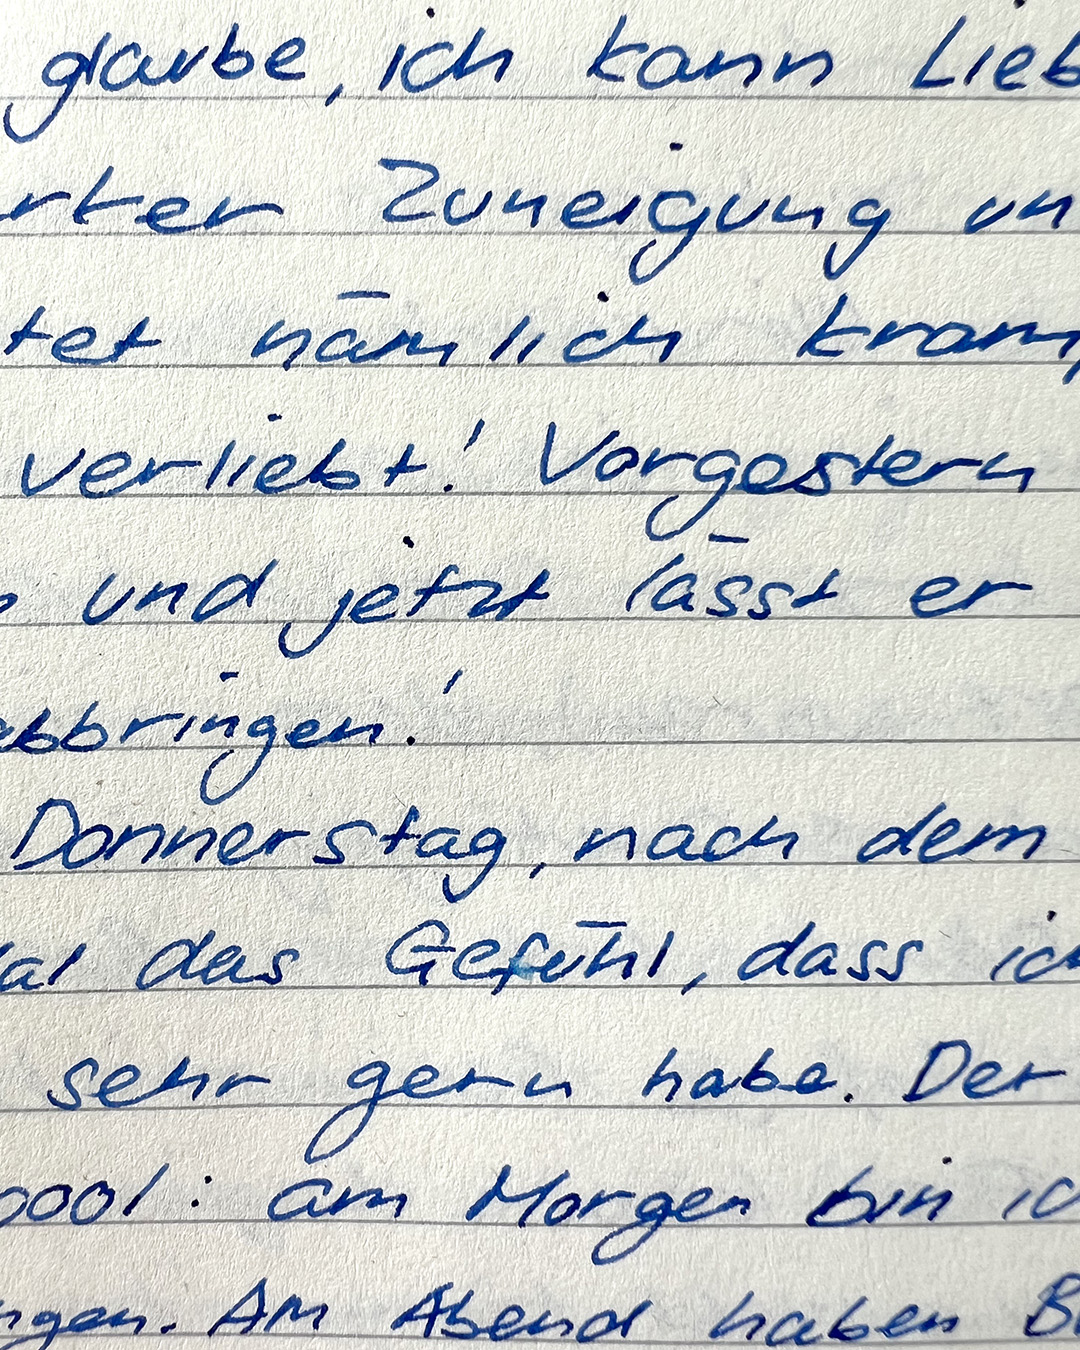 glaube, ich kann Lieb
rker Zuneigung un
tet nämlich kram
verliebt! Vorgestern
und jetzt lässt er
abbringen!
Donnerstag, nach dem
al das Gefühl, dass ich
sehr gern habe. Der
ool: am Morgen bin ic
ngen. Am Abend haben B